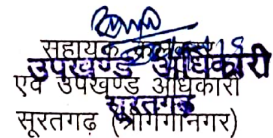 सहायक कलक्टर
उपखण्ड अधिकारी
एवं उपखण्ड अधिकारी
सूरतगढ़
सूरतगढ़ (श्रीगंगानगर)